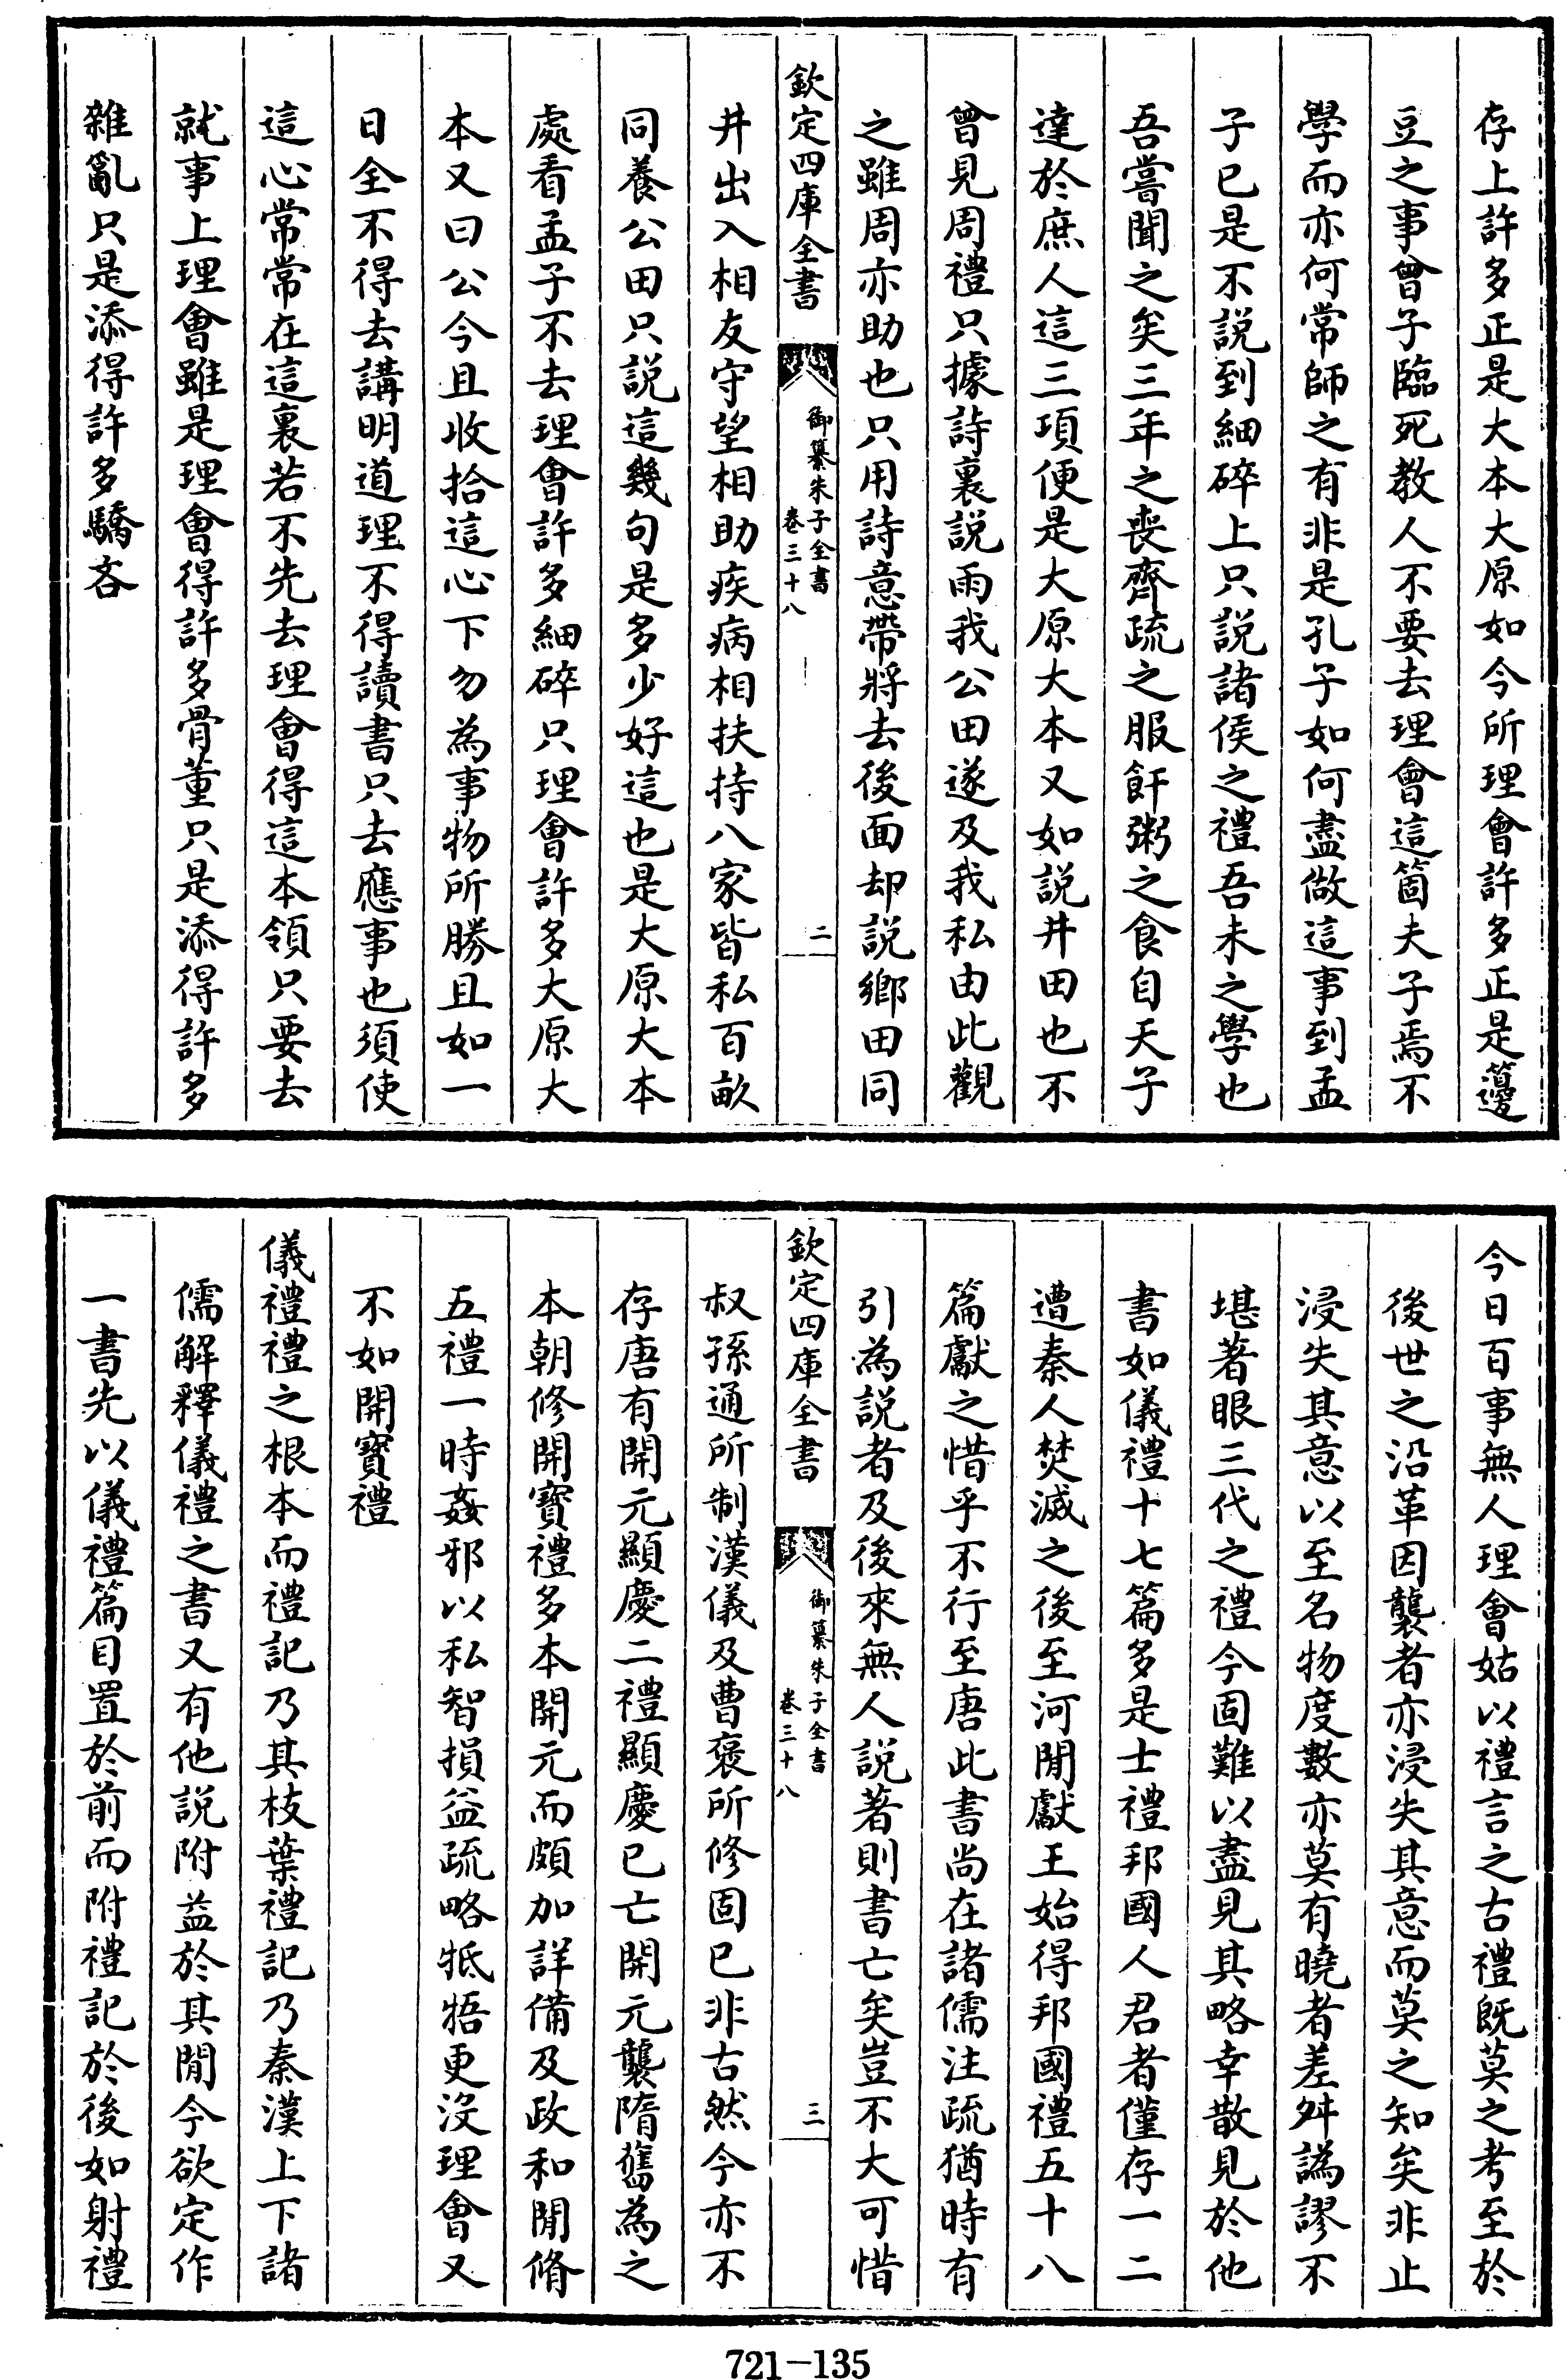 存上許多正是大本大原如今所理會許多正是籩
豆之事曾子臨死教人不要去理會這箇夫子焉不
學而亦何常師之有非是孔子如何盡做這事到孟
子已是不說到細碎上只說諸侯之禮吾未之學也
吾嘗聞之矣三年之喪齊疏之服飦粥之食自天子
達於庶人這三項便是大原大本又如說井田也不
曾見周禮只據詩裏說雨我公田遂及我私由此觀
之雖周亦助也只用詩意帶將去後面却說鄉田同
欽定四庫全書
御纂朱子全書
卷三十八
二
井出入相友守望相助疾病相扶持八家皆私百畝
同養公田只說這幾句是多少好這也是大原大本
處看孟子不去理會許多細碎只理會許多大原大
本又曰公今且收拾這心下勿為事物所勝且如一
日全不得去講明道理不得讀書只去應事也須使
這心常常在這裏若不先去理會得這本領只要去
就事上理會雖是理會得許多骨董只是添得許多
雜亂只是添得許多驕吝
今日百事無人理會姑以禮言之古禮既莫之考至於
後世之沿革因襲者亦浸失其意而莫之知矣非止
浸失其意以至名物度數亦莫有曉者差舛譌謬不
堪著眼三代之禮今固難以盡見其略幸散見於他
書如儀禮十七篇多是士禮邦國人君者僅存一二
遭秦人焚滅之後至河閒獻王始得邦國禮五十八
篇獻之惜乎不行至唐此書尚在諸儒注疏猶時有
引為說者及後來無人說著則書亡矣豈不大可惜
欽定四庫全書
御纂朱子全書
卷三十八
三
叔孫通所制漢儀及曹褒所修固已非古然今亦不
存唐有開元顯慶二禮顯慶已亡開元襲隋舊為之
本朝修開寶禮多本開元而頗加詳備及政和閒脩
五禮一時姦邪以私智損益疏略牴牾更沒理會又
不如開寶禮
儀禮禮之根本而禮記乃其枝葉禮記乃秦漢上下諸
儒解釋儀禮之書又有他說附益於其閒今欲定作
一書先以儀禮篇目置於前而附禮記於後如射禮
721—135